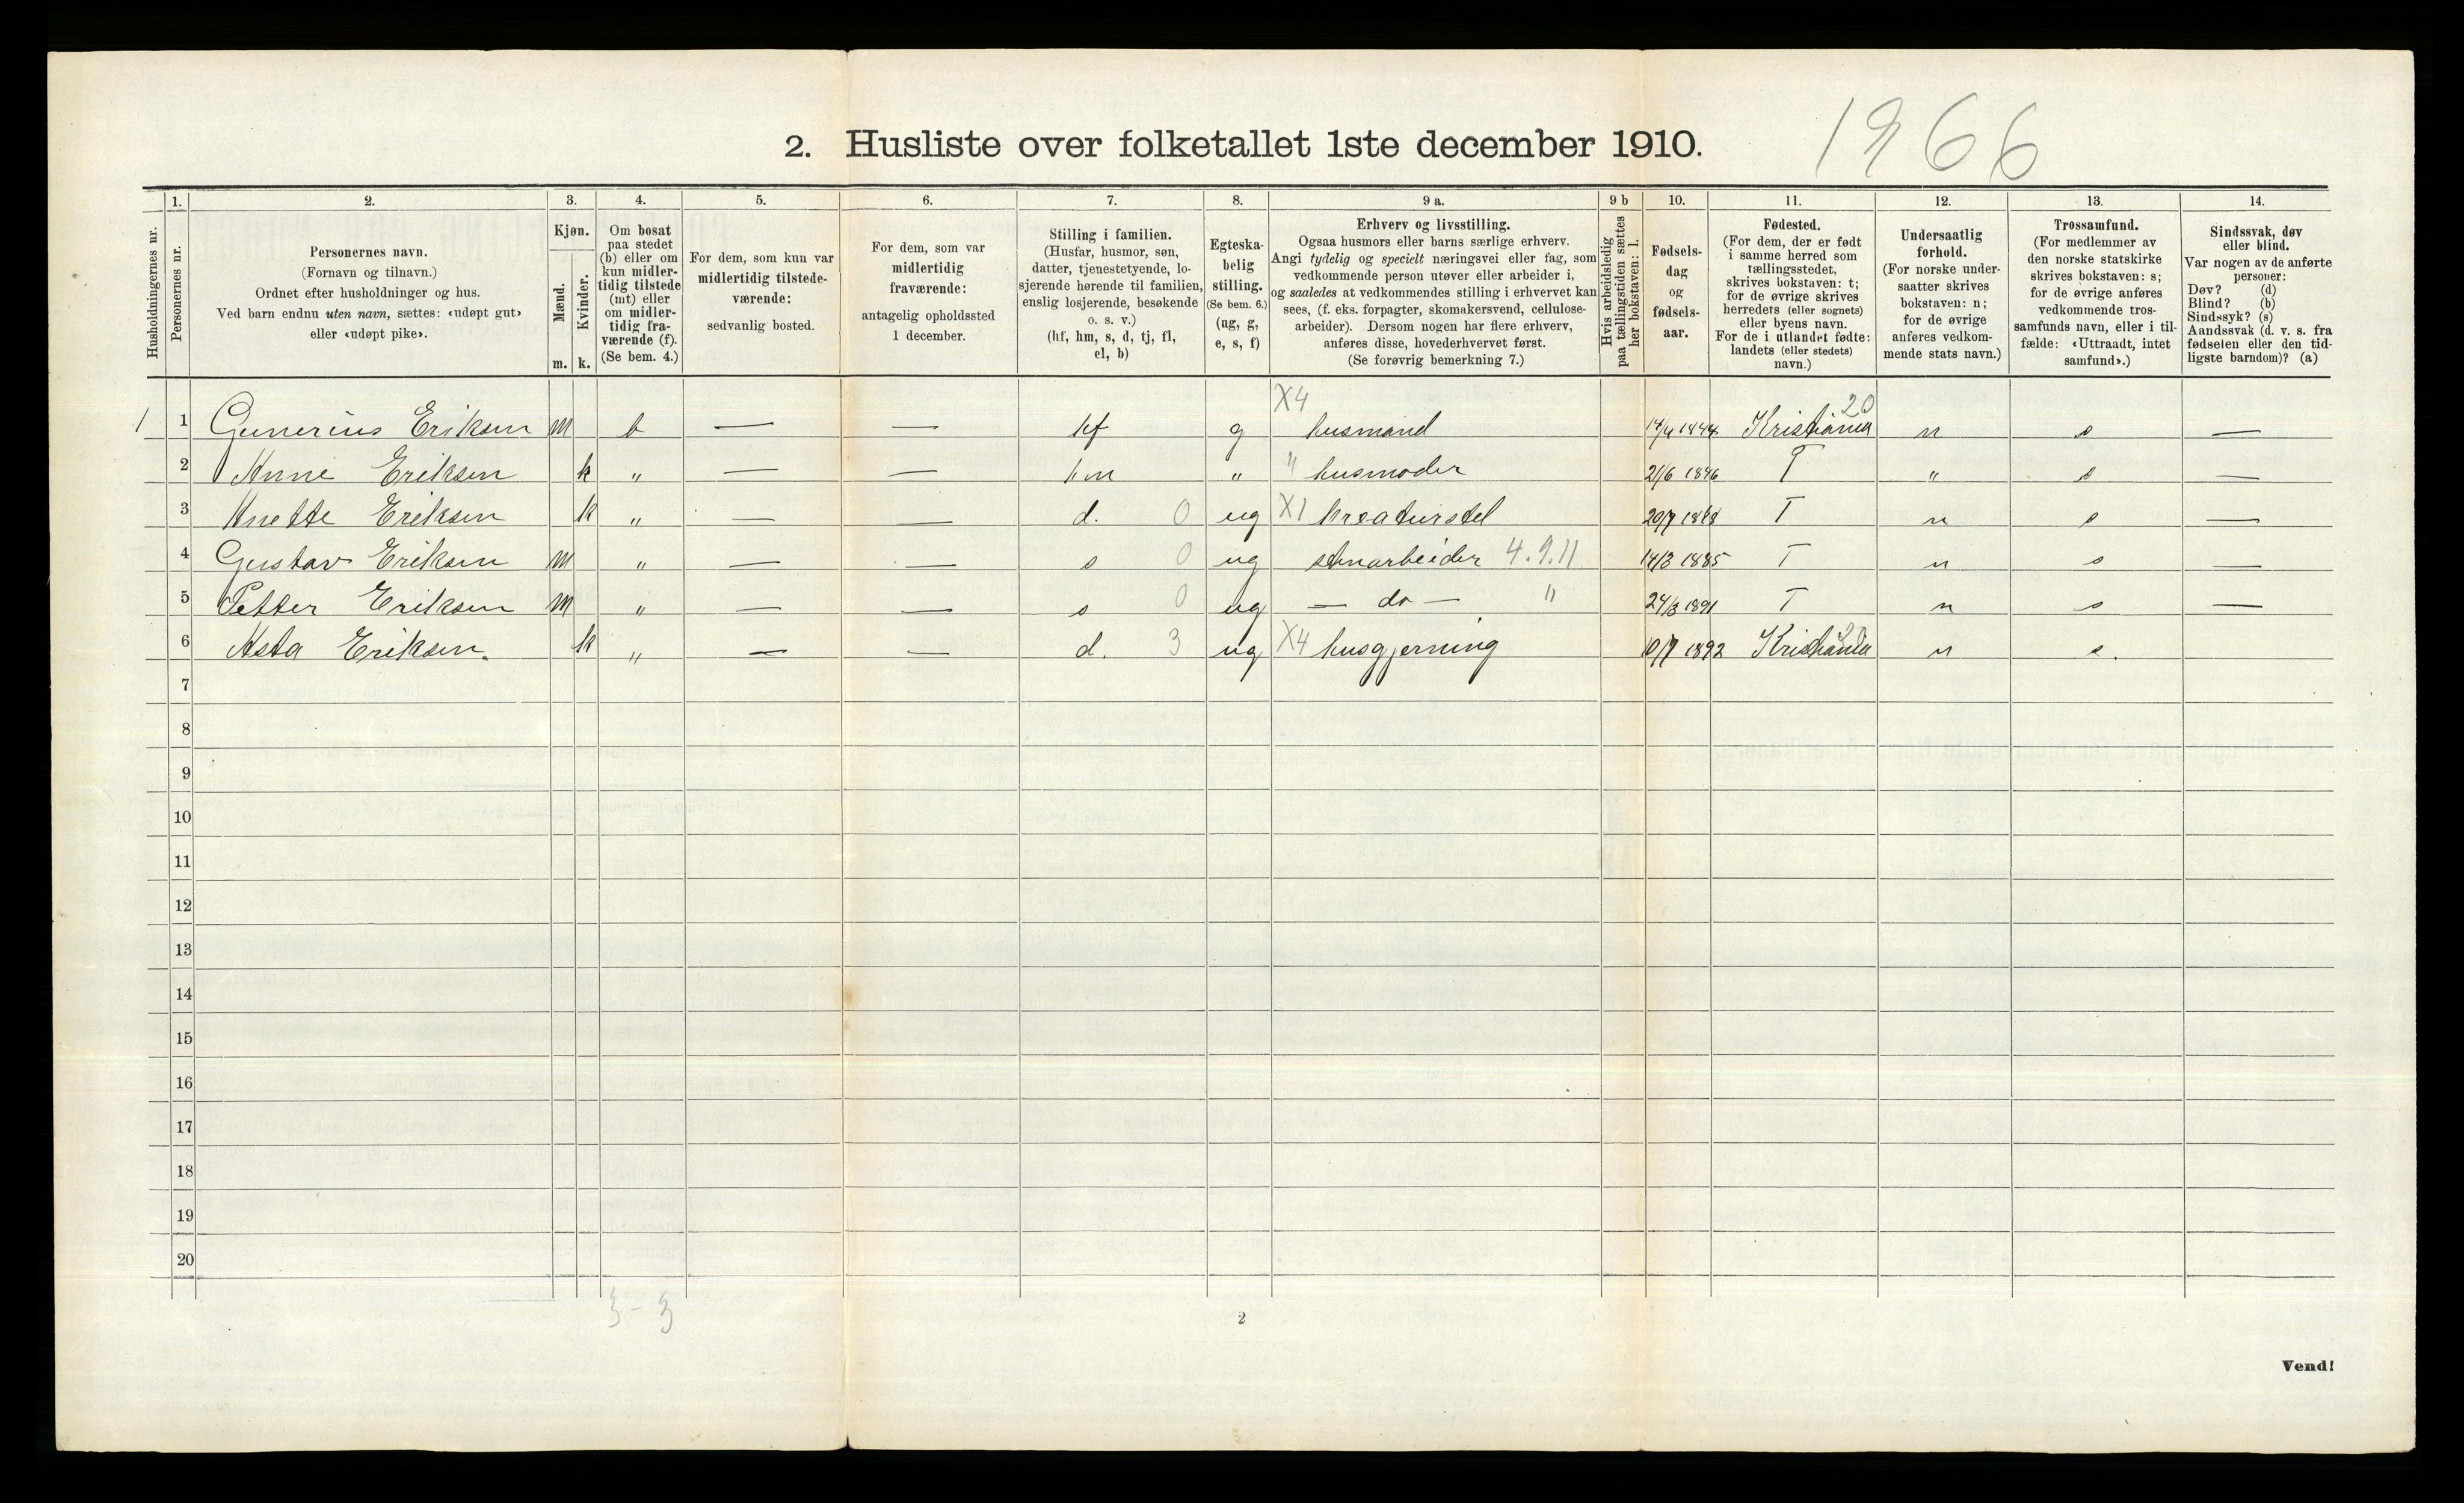 1966
2. Husliste over folketallet 1ste december 1910.
Husholdningernes nr.
1. Personernes nr.
2. Personernes navn. (Fornavn og tilnavn.) Ordnet efter husholdninger og hus. Ved barn endnu uten navn, sættes: «udøpt gut» eller «udøpt pike».
3. Kjøn. Mænd. m. Kvinder. k.
4. Om bosat paa stedet (b) eller om kun midlertidig tilstede (mt) eller om midlertidig fraværende (f). (Se bem. 4.)
5. For dem, som kun var midlertidig tilstedeværende: sedvanlig bosted.
6. For dem, som var midlertidig fraværende: antagelig opholdssted 1 december.
7. Stilling i familien. (Husfar, husmor, søn, datter, tjenestetyende, losjerende hørende til familien, enslig losjerende, besøkende o. s. v.) (hf, hm, s, d, tj, fl, el, b)
8. Egteskabelig stilling. (Se bem. 6.) (ug, g, e, s, f)
9 a. Erhverv og livsstilling. Ogsaa husmors eller barns særlige erhverv. Angi tydelig og specielt næringsvei eller fag, som vedkommende person utøver eller arbeider i, og saaledes at vedkommendes stilling i erhvervet kan sees, (f. eks. forpagter, skomakersvend, cellulosearbeider). Dersom nogen har flere erhverv, anføres disse, hovederhvervet først. (Se forøvrig bemerkning 7.)
9 b Hvis arbeidsledig paa tællingstiden sættes her bokstaven: l.
10. Fødselsdag og fødselsaar.
11. Fødested. (For dem, der er født i samme herred som tællingsstedet, skrives bokstaven: t; for de øvrige skrives herredets (eller sognets) eller byens navn. For de i utlandet fødte: landets (eller stedets) navn.)
12. Undersaatlig forhold. (For norske undersaatter skrives bokstaven: n; for de øvrige anføres vedkommende stats navn.)
13. Trossamfund. (For medlemmer av den norske statskirke skrives bokstaven: s; for de øvrige anføres vedkommende trossamfunds navn, eller i tilfælde: «Uttraadt, intet samfund».)
14. Sindssvak, døv eller blind. Var nogen av de anførte personer: Døv? (d) Blind? (b) Sindssyk? (s) Aandssvak (d. v. s. fra fødselen eller den tidligste barndom)? (a)
1 1 Gunerius Eriksen m b — — hf g X4 husmand 14/4 1844 Kristiania 20 n s —
2 Anne Eriksen k " — — hm " " husmoder 21/6 1846 T " s —
3 Anette Eriksen k " — — d. 0 ug X1 kreaturstel 20/7 T n s —
4 Gustav Eriksen m " — — s 0 ug stenarbeider 4.9.11 14/3 1885 T n s —
5 Petter Eriksen m " — — s 0 ug — do — " 24/3 1891 T n s —
6 Asta Eriksen. k " — — d. 3 ug X4 husgjerning 10/7 1892 Kristiania 20 n s.
7
8
9
10
11
12
13
14
15
16
17
18
19
20
3 - 3
2
Vend!